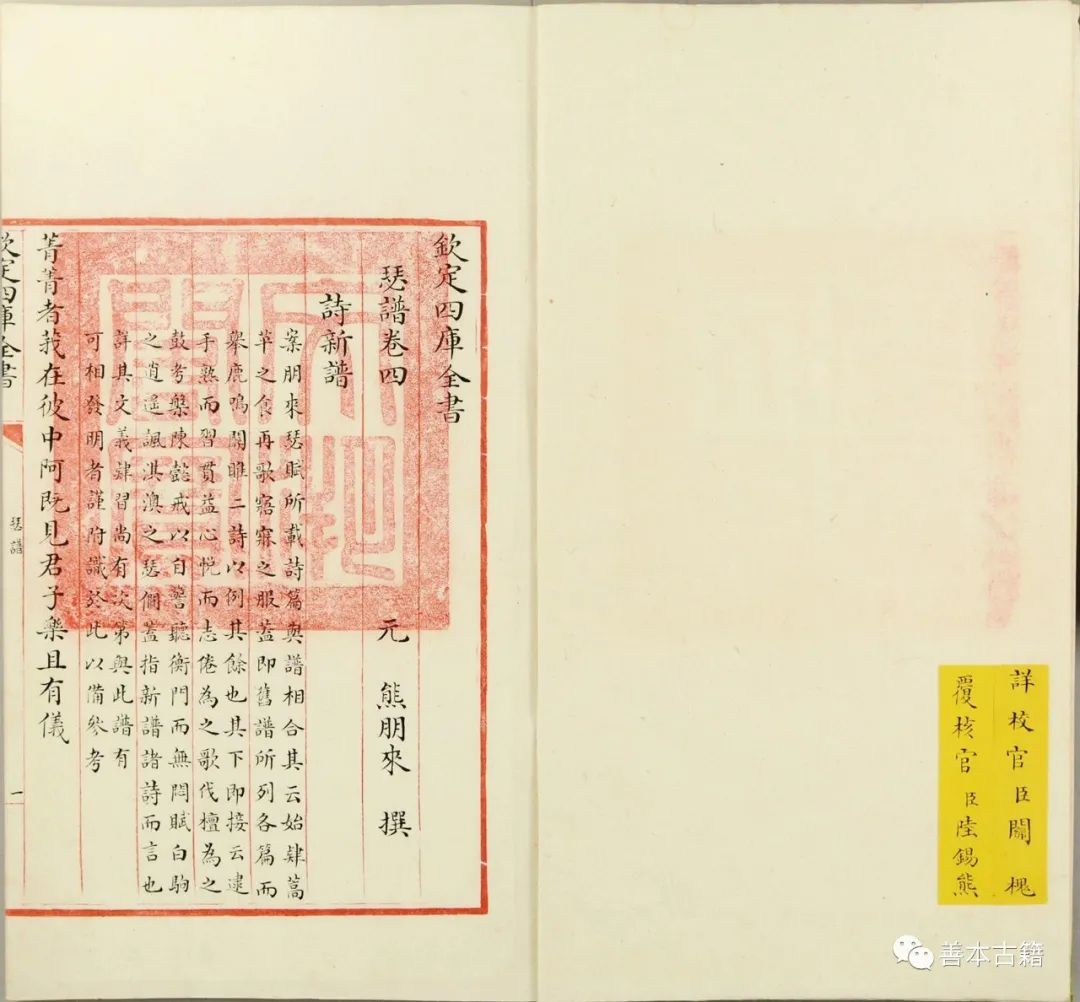 詳校官臣關槐
覆核官臣陸錫熊
欽定四庫全書
瑟譜卷四
元 熊朋來 撰
詩新譜
案朋來瑟賦所載詩篇與譜相合其云始肄蒿
苹之食再歌寤寐之服蓋即舊譜所列各篇而
舉鹿鳴關雎二詩以例其餘也其下即接云逮
手熟而習貫益心悅而志倦為之歌伐檀為之
鼓考槃陳懿戒以自警聽衡門而無悶賦白駒
之逍遥諷淇澳之瑟僩蓋指新譜諸詩而言也
詳其文義肄習尚有次第與此譜有
可相發明者謹附識於此以備參考
菁菁者莪在彼中阿既見君子樂且有儀
欽定四庫全書
瑟譜
一
善本古籍